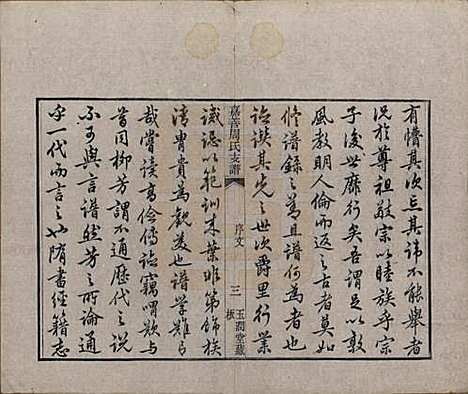 有懵其次忘其諱不能舉者
況於尊祖敬宗以睦族乎宗
子後世靡行矣吾謂足以敦
風教明人倫而返之古者莫如
修譜錄之為且譜何為者也
詮譔其先之世次爵里行業
嘉善周氏支譜
序文
三
玉潤堂藏
板
誡誌以範訓來葉非第飾族
清胄貴為觀美也譜學難言
哉嘗讀高儉傳詒竊喟歎与
昔因柳芳謂不通歷代之說
不可與言譜然芳之所論通
乎一代而言之也隋書經籍志